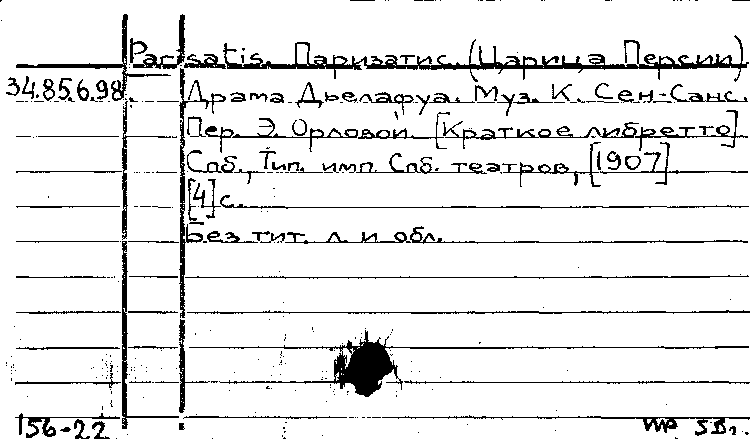 Parisatis. Паризатис. (Царица Персии)
34.85.6.98. Драма Дьелафуа. Муз. К. Сен-Санс.
Пер. Э. Орловой. [Краткое либретто]
Спб., Тип. имп. Спб. театров, [1907].
[4] с.
Без тит. л. и обл.
156-22